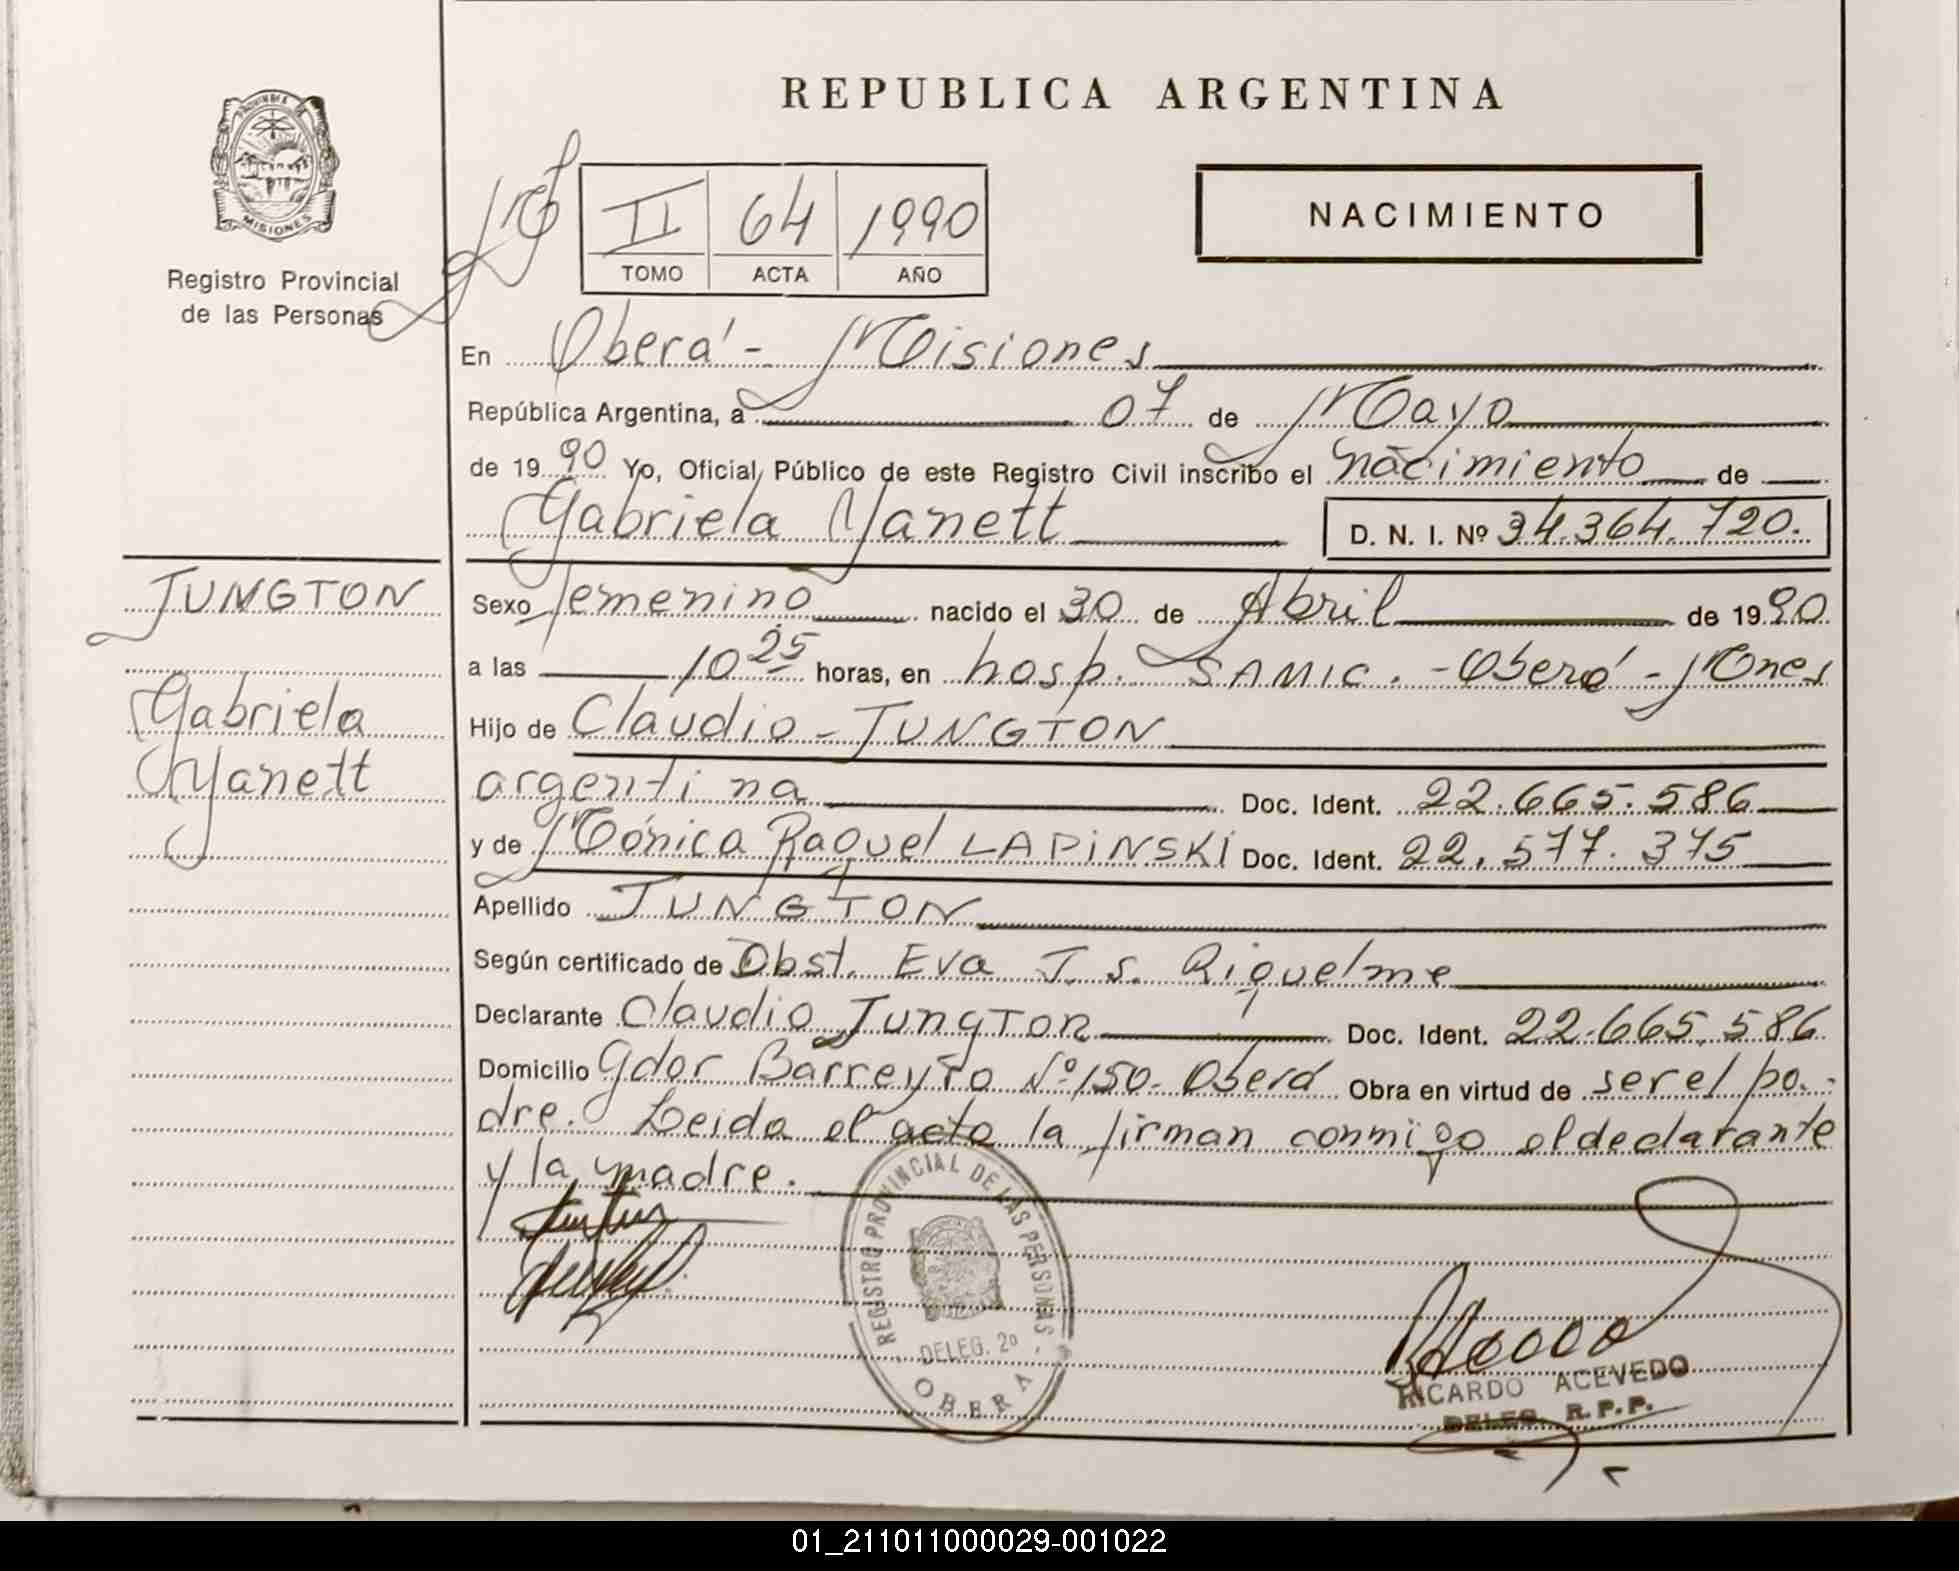 REPUBLICA ARGENTINA
PROVINCIA
MISIONES
Registro Provincial
de las Personas
II 64 1990
TOMO ACTA AÑO
NACIMIENTO
En Oberá - Misiones
República Argentina, a 07 de Mayo
de 1990 Yo, Oficial Público de este Registro Civil inscribo el nacimiento de
Gabriela Yanett D. N. I. Nº 34.364.720.
JUNGTON
Gabriela
Yanett
Sexo femenino nacido el 30 de Abril de 1990
a las 10 25 horas, en hosp. SAMIC. - Oberá - Mnes
Hijo de Claudio - JUNGTON
argentina Doc. Ident. 22.665.586
y de Mónica Raquel LAPINSKI Doc. Ident. 22.577.375
Apellido JUNGTON
Según certificado de Obst. Eva J. S. Riquelme
Declarante Claudio JUNGTON Doc. Ident. 22.665.586
Domicilio Gdor Barreyro Nº 150. Oberá Obra en virtud de ser el pa-
dre. Leida el acta la firman conmigo el declarante
y la madre.
REGISTRO PROVINCIAL DE LAS PERSONAS
DELEG. 2ª
OBERA
RICARDO ACEVEDO
DELEG. R.P.P.
01_211011000029-001022